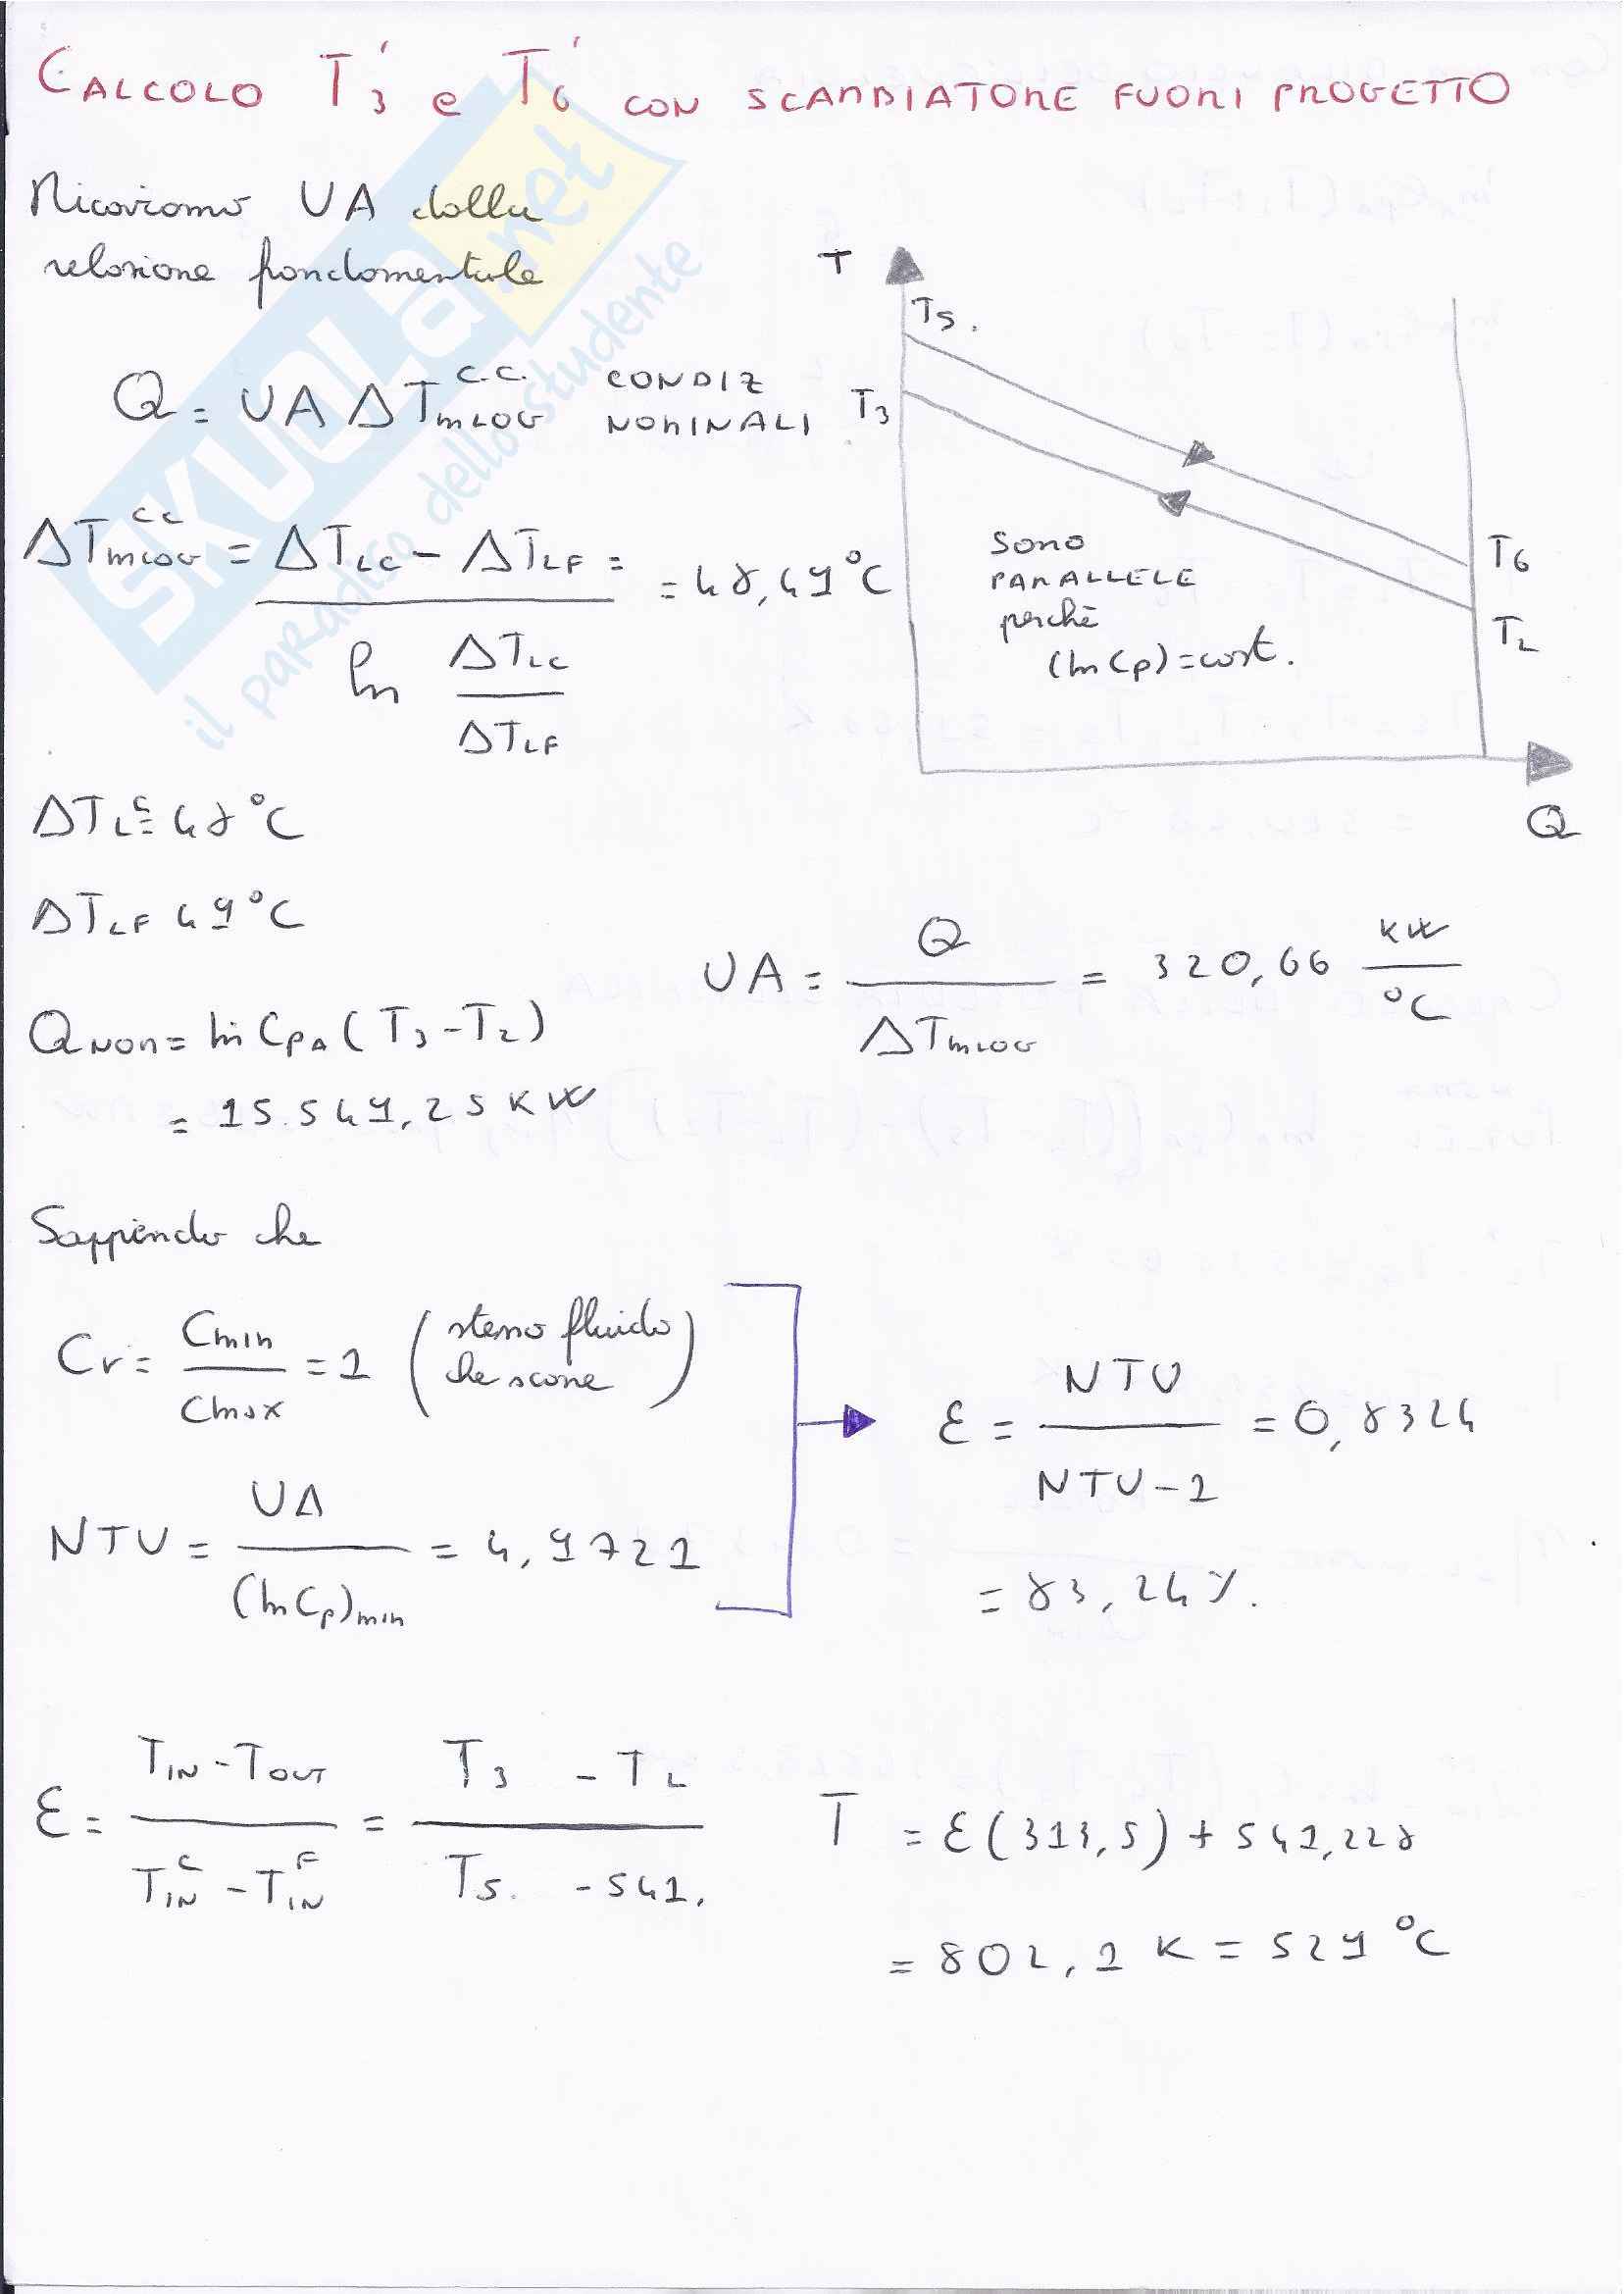 CALCOLO T3' e T6' CON SCAMBIATORE FUORI PROGETTO
Ricaviamo UA dalla
relazione fondamentale
Q = UA ΔTmLOG^C.C. CONDIZ NOMINALI
ΔTmLOG^CC = (ΔTLC - ΔTLF) / (ln ΔTLC/ΔTLF) = = 48,49°C
ΔTLC = 48°C
ΔTLF 49°C
QNOM = ṁ CPA (T3 - T2)
= 15.549,25 KW
T
T5.
T3
T6
T2
SONO
PARALLELE
perchè
(ṁCp) = cost.
Q
UA = Q / ΔTmLOG = 320,66 KW/°C
Sappiendo che
Cr = Cmin / Cmax = 1 (stesso fluido che scorre)
NTU = UA / (ṁCp)min = 4,9721
ε = NTU / NTU-1 = 0,8324
= 83,24%.
ε = (TIN - TOUT) / (TIN^C - TIN^F) = (T3 - T2) / (T5. - 541.
T = ε(313,5) + 541,228
= 802,1 K = 529 °C
SKUOLA.net
il paradiso dello studente